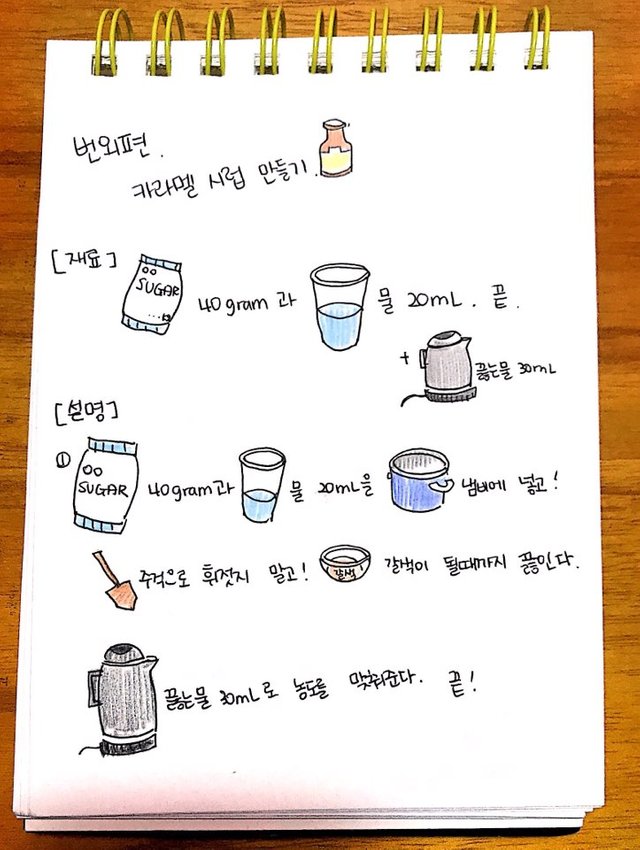 번외편.
카라멜 시럽 만들기.
[재료]
SUGAR 40gram과 물 20mL. 끝.
+ 끓는물 30mL
[설명]
① SUGAR 40gram과 물 20mL을 냄비에 넣고!
주걱으로 휘젓지 말고! 갈색 갈색이 될때까지 끓인다.
끓는물 30mL로 농도를 맞춰준다. 끝!